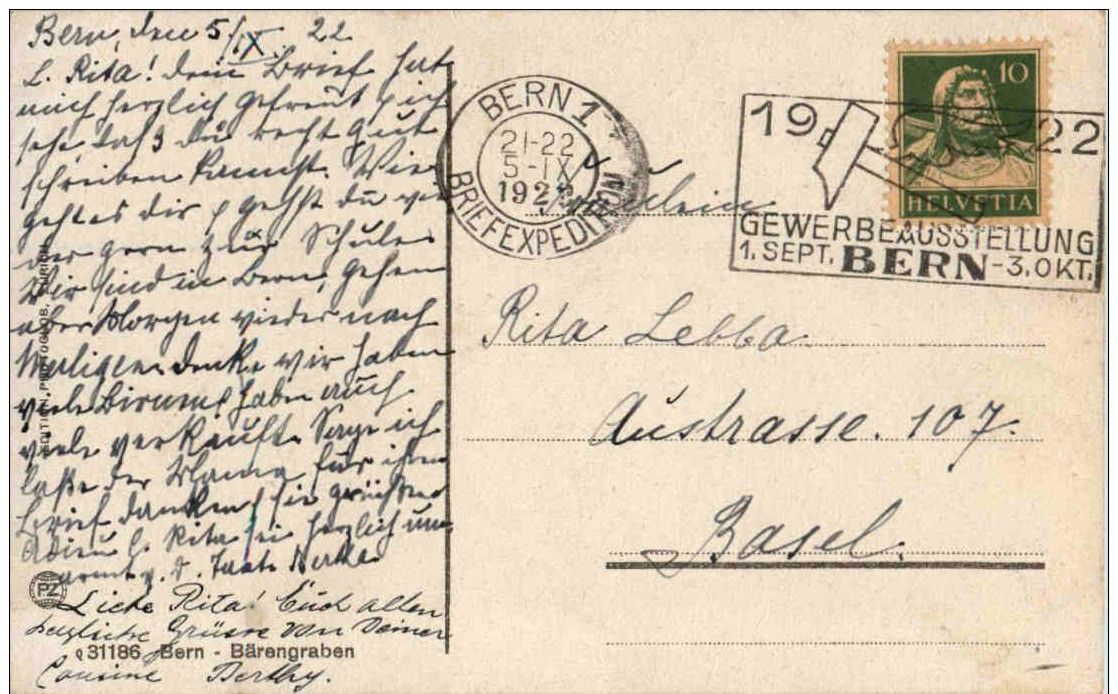 Bern, den 5/IX. 22
L. Rita! dein Brief hat
mich herzlich gefreut, ich
sehe daß du recht gut
schreiben kannst. Wie
geht es dir, gehst du wie
der gern zur Schule.
Wir sind in Bern, gehen
aber Morgen wieder nach
denke wir haben
viele Birnen, haben auch
viele verkauft. Sage ich
laße der Mama für ihren
Brief danken, sie grüßen
Adieu l. Rita sei herzlich um
armt v. d. Tante Bertha
Liebe Rita! Euch allen
herzliche Grüsse von Deiner
Cousine Berthy.
EDITION PHOTOGLOB, ZÜRICH
PZ
31186 Bern - Bärengraben
BERN 1
21-22
5-IX
1922
BRIEFEXPEDITION
1922
GEWERBEAUSSTELLUNG
1. SEPT. BERN - 3. OKT.
10
HELVETIA
Fräulein
Rita Lebba
Austrasse. 107.
Basel.